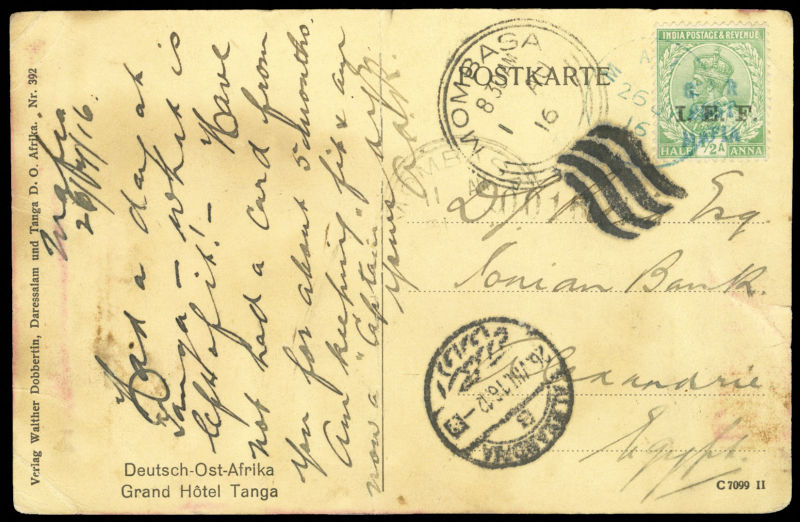 Verlag Walther Dobbertin, Daressalam und Tanga D. O. Afrika. Nr. 392
Mafia
26/7/16.
Paid a day at
Tanga — what is
left of it! — Have
not had a card from
you for about 5 months.
Am keeping fit & am
now a "Captain"
Yours
Deutsch-Ost-Afrika
Grand Hôtel Tanga
POSTKARTE
MOMBASA
8.30 AM
1 AU
16
MOMBASA
11 AU
INDIA POSTAGE & REVENUE
G. R
POST
MAFIA
I. E. F.
HALF 1/2 A ANNA
26
16
Esq.
Ionian Bank.
Alexandria
Egypt.
ALEXANDRIA
B
C 7099 II